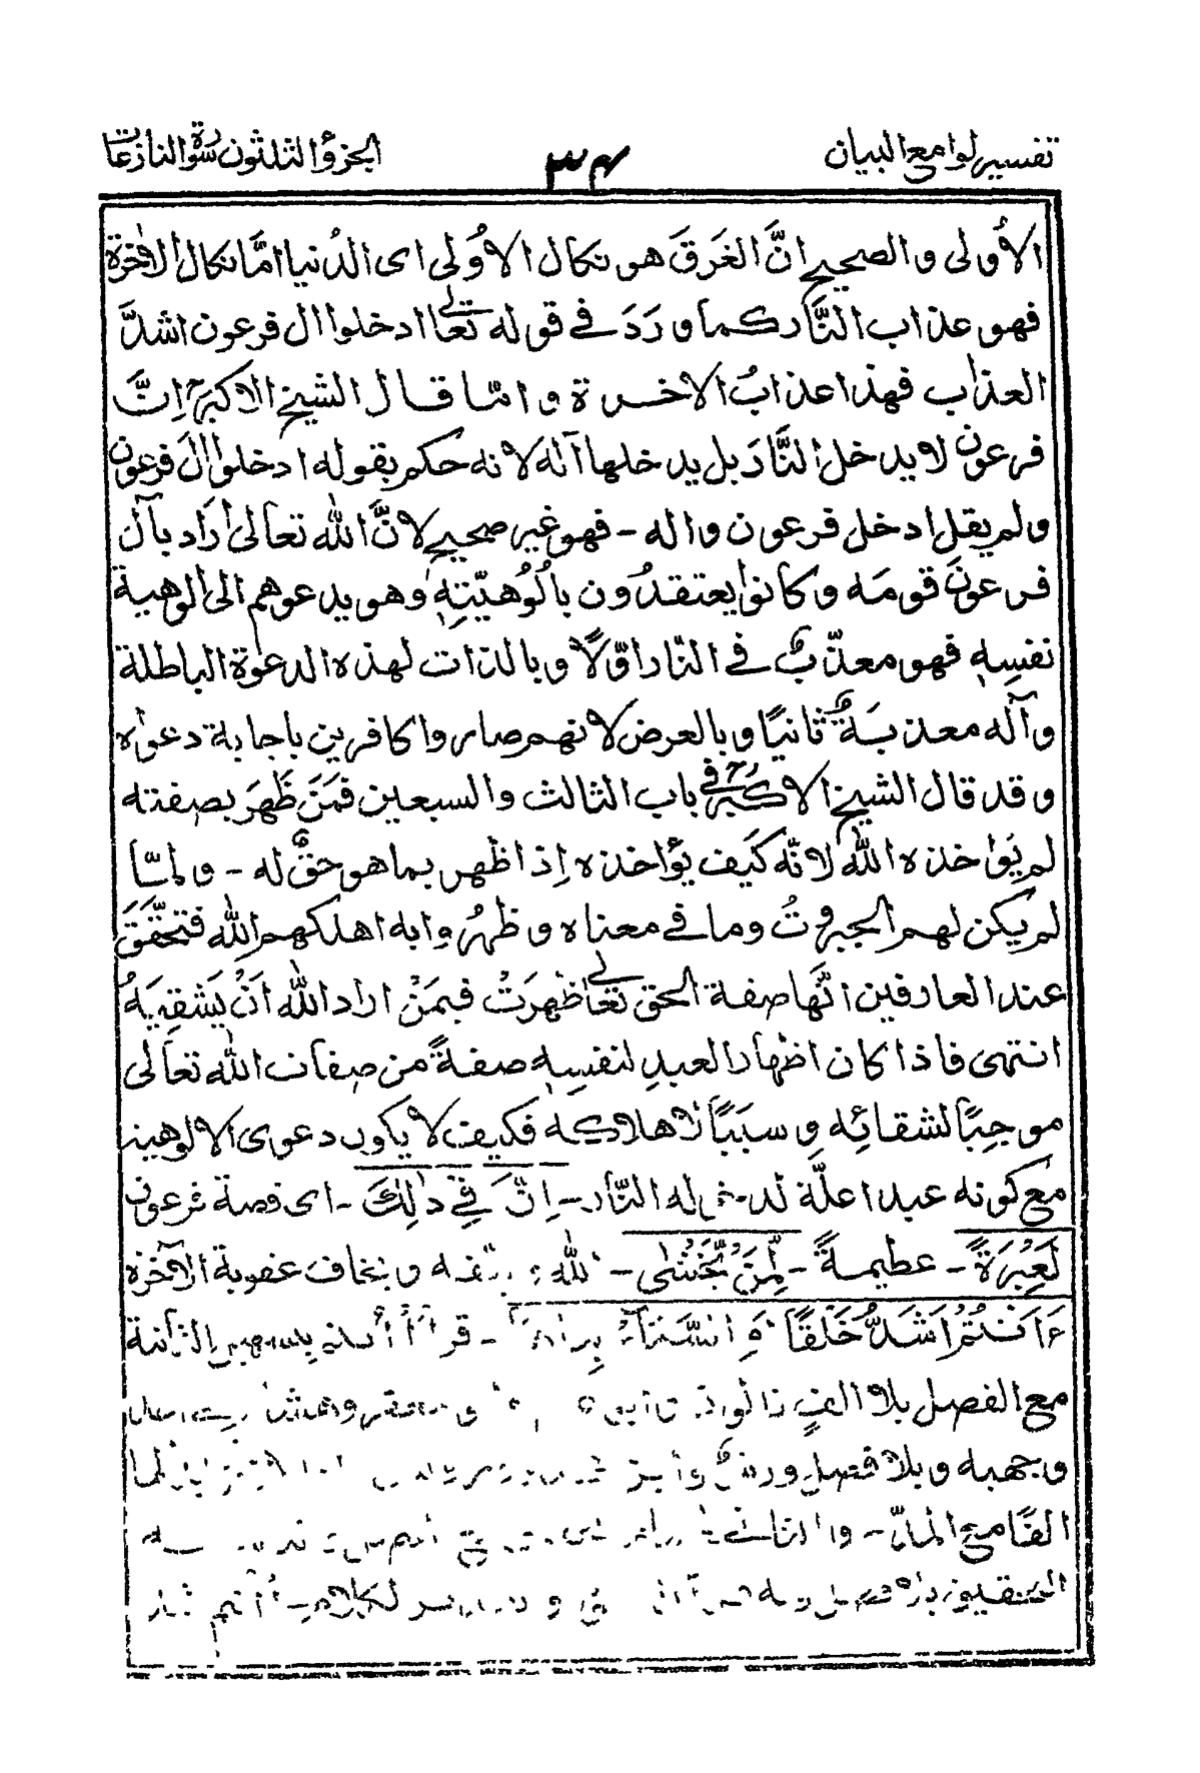 تفسير لوامع البيان
٣٤
الجزؤ الثلثون سورة والنازعات
الأولى والصحيح انَّ الغَرَقَ هو نكال الاُولى اى الدُنيا امَّا نكال الاٰخرة
فهو عذاب النَّار كما وَرَدَ فے قوله تعالى ادخلوا ال فرعون اشدَّ
العذاب فهذا عذابُ الاخرة وامّا قال الشيخ الاكبرؒ اِنَّ
فرعون لا يدخل النَّارَ بل يدخلها آله لانه حكم بقوله ادخلوا الَ فرعون
ولم يقل ادخل فرعون واله - فهو غير صحيحٍ لانَّ الله تعالى اَرَاد بآل
فرعونَ قومَه وكانوا يعتقدُون بالُوُهيّتِهٖ وهو يدعوهم الى الوهية
نفسِهٖ فهو معذّبٌ فے النّار اوّلاً وبالذات لهذه الدعوة الباطلة
وآله معذبَةٌ ثانيًا وبالعرض لانهم صاروا كافرين باجابة دعواه
وقد قال الشيخ الاكبرؒ فى باب الثالث والسبعين فَمَنَ ظَهَرَ بصفته
لم يَوَاخذه الله لانّه كَيف يؤاخذه اِذا ظهر بما هو حقٌّ له - ولمّا
لم يكن لهم الجبروتُ وما فے معناه وظهرُوا به اهلكهم الله فتحقَّقَ
عند العارفين انَّها صفة الحق تعالى ظهرَتْ فيمَنْ اراد الله اَنْ يَشقِيَهُ
انتهى فاذا كان اظهار العبدِ لنفسِهٖ صفةً من صفات الله تعالى
موجِبًا لشقائِه وسبَبًا لاهلاكه فكيف لا يكون دعوى الالوهية
مع كونه عبدا علّة لدخوله النَّار - اِنَّ فِےْ ذٰلِكَ - اى قصة فرعون
لَعِبْرَةً - عظيمةً - لِّمَنْ يَّخْشٰى - الله وبخاف عقوبة الاٰخرة
ءَاَنْتُمْ اَشَدُّ خَلْقًا اَمِ السَّمَآءُ بناها - قرأ
مع الفصل بلا الفٍ
وجهبه وبلا فصل
القامع المارّ - والثانے
لكلام - أأنتم